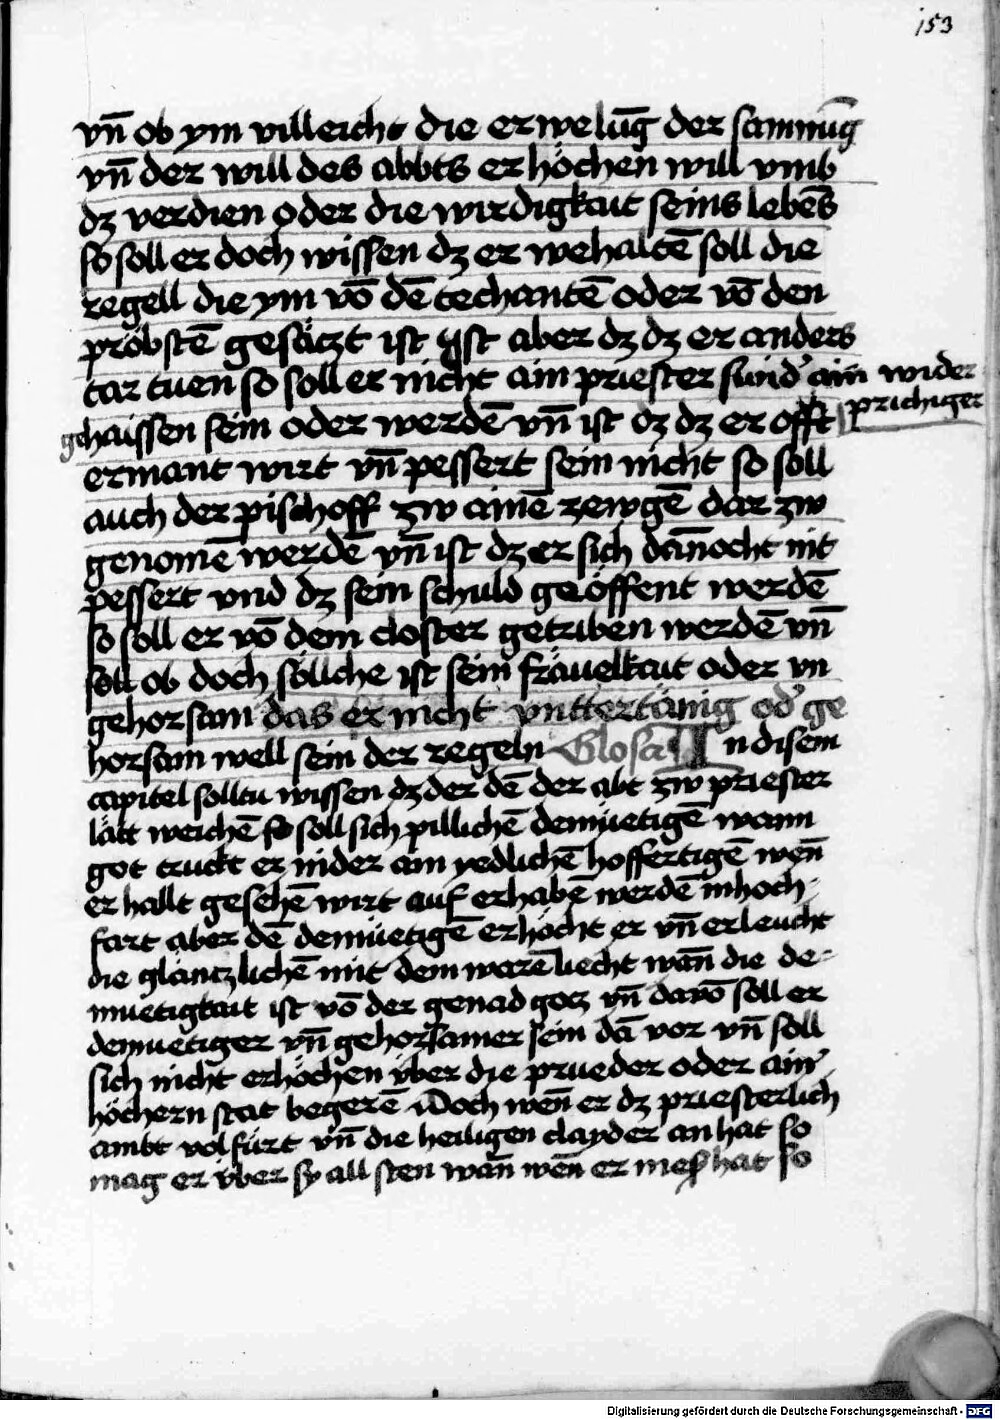 153
vn̄ ob ym villeicht die erwelūg der samnūg
vn̄ der will des abbts erhöchen will vmb
dz verdien oder die wirdigkait seins lebēs
so soll er doch wissen dz er wehaltē soll die
regell die ym vō dē techantē oder vō den
pröbstē gesäczt ist Ist aber dz dz er anders
tar tuen so soll er nicht ain priester sund' ain wider
prichiger
gehaissen sein oder werdē vn̄ ist dz dz er offt
ermant wirt vn̄ pessert sein nicht so soll
auch der pischoff zw ainē zewgē dar zw
genomē werdē vn̄ ist dz er sich dan̄ocht nit
pessert vnd dz sein schuld geöffent werdē
so soll er vō dem closter getriben werdē vn̄
soll ob doch söllche ist sein fräuelkait oder vn
gehorsam das er nicht vnttertänig od' ge
horsam well sein der regeln Glosa In disem
capitel solltu wissen dz der dē der abt zw priester
lätt weichē so soll sich pillichē demüetigē wann
got truckt er nider ain yedlichē hoffertigē wen̄
er hallt gesehē wirt auf erhabē werdē in hoch-
fart aber dē demüetigē erhöcht er vn̄ erleucht
die gläntzlichē mit dem warē liecht wan̄ die de-
muetigkait ist vō der genad gotz vn̄ davō soll er
demuetiger vn̄ gehorsamer sein dā vor vn̄ soll
sich nicht erhöchen vber die prueder oder ain'
höchern stat begerē Doch wen̄ er dz priesterlich
ambt volfürt vn̄ die heiligen clayder an hat so
mag er vber sy all sten wan̄ wen̄ er mess hat so
Digitalisierung gefördert durch die Deutsche Forschungsgemeinschaft - DFG